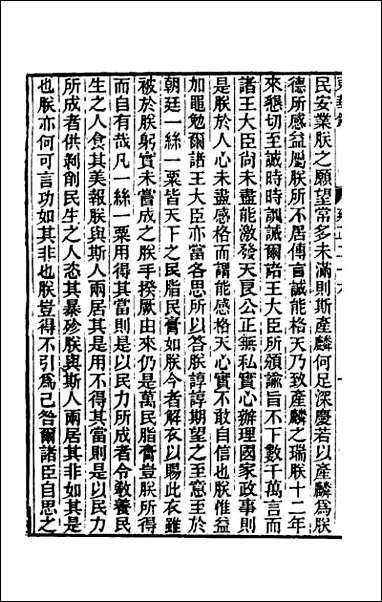 民安業朕之願望常多未滿則斯產麟何足深慶若以產麟為朕
德所感益屬朕所不居傳言誠能格天乃致產麟之瑞朕十二年
來懇切至誠時時訓誡爾諸王大臣所頒諭旨不下數千萬言而
諸王大臣尚未盡能激發天良公正無私實心辦理國家政事則
是朕於人心未盡感格而謂能感格天心實不敢自信也朕惟益
加黽勉爾諸王大臣亦當各思所以答朕諄諄期望之至意至於
朝廷一絲一粟皆天下之民脂民膏如朕今者解衣以賜此衣雖
被於朕躬實未嘗成之朕手揆厥由來仍是萬民脂膏豈朕所得
而自有哉凡一絲一粟用得其當則是以民力所成者令敎養民
生之人食其美報朕與斯人兩居其是用不得其當則是以民力
所成者供剝削民生之人恣其暴殄朕與斯人兩居其非如其是
也朕亦何可言功如其非也朕豈得不引爲己咎爾諸臣自思之